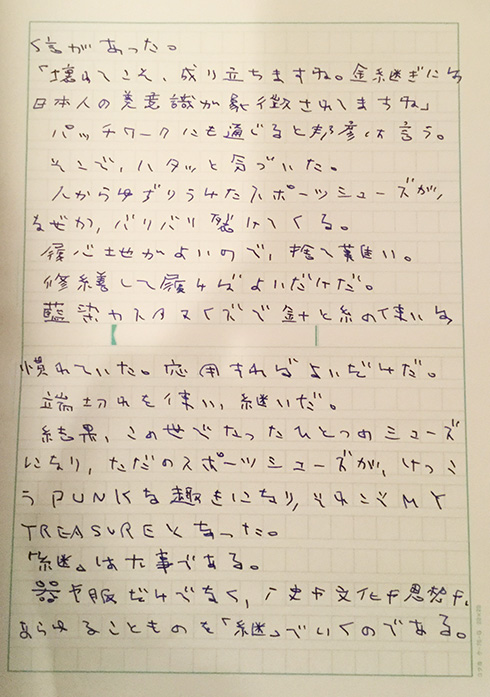 く信があった。
「壊れてこそ、成り立ちますね。金継ぎには
日本人の美意識が象徴されてますね」
パッチワークにも通じると邦彦は言う。
そこで、ハタッと気づいた。
人からゆずりうけたスポーツシューズが、
なぜか、バリバリ裂けてくる。
履心地がよいので、捨て難い。
修繕して履けばよいだけだ。
藍染カスタマイズで針と糸の使いは
慣れていた。応用すればよいだけだ。
端切れを使い、継いだ。
結果、この世でたったひとつのシューズ
になり、ただのスポーツシューズが、けっこ
うPUNKな趣きになり、それこそMY
TREASUREとなった。
「継」は大事である。
器や服だけでなく、歴史や文化や思想や、
あらゆることものを「継」でいくのである。